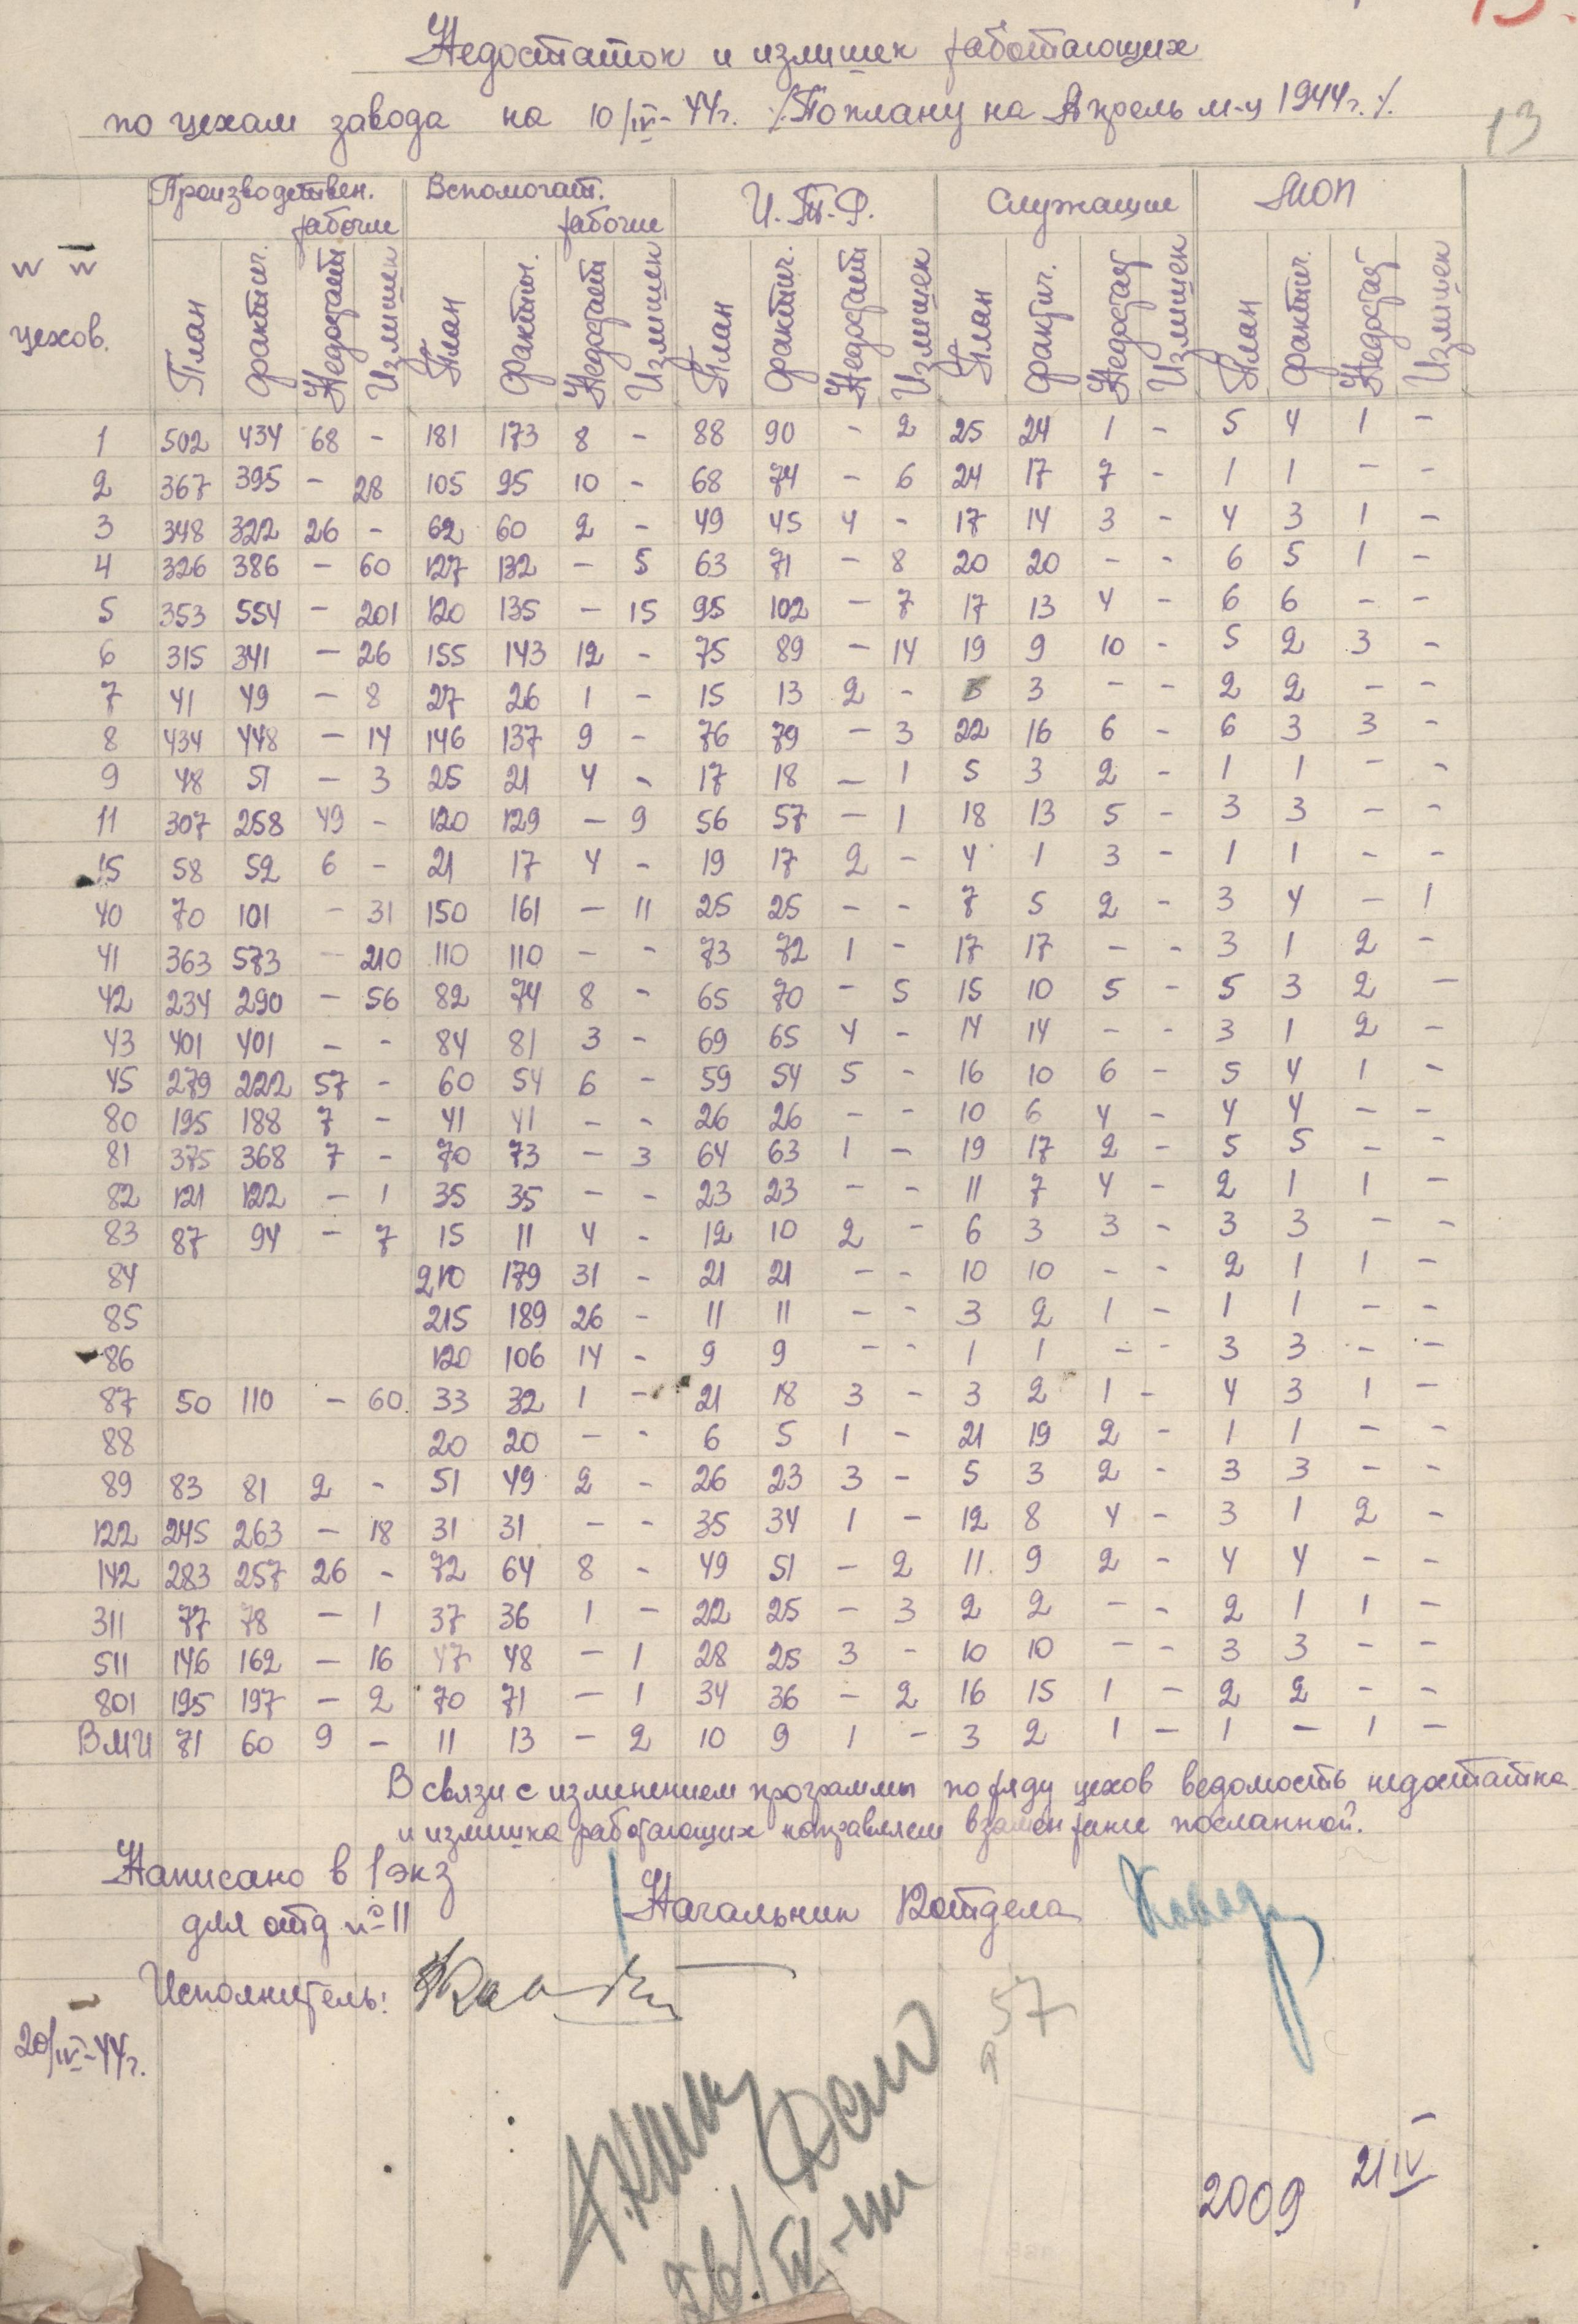 13.
Недостаток и излишек работающих
по цехам завода на 10/IV-44г. /.По плану на Апрель м-ц 1944г./.
13
№№ цехов. Производствен. рабочие Вспомогат. рабочие И.Т.Р. Служащие МОП
План Фактич. Недостат Излишек План Фактич. Недостат Излишек План Фактич. Недостат Излишек План Фактич. Недостат Излишек План Фактич. Недостат Излишек
1 502 434 68 - 181 173 8 - 88 90 - 2 25 24 1 - 5 4 1 -
2 367 395 - 28 105 95 10 - 68 74 - 6 24 17 7 - 1 1 - -
3 348 322 26 - 62 60 2 - 49 45 4 - 17 14 3 - 4 3 1 -
4 326 386 - 60 127 132 - 5 63 71 - 8 20 20 - - 6 5 1 -
5 353 554 - 201 120 135 - 15 95 102 - 7 17 13 4 - 6 6 - -
6 315 341 - 26 155 143 12 - 75 89 - 14 19 9 10 - 5 2 3 -
7 41 49 - 8 27 26 1 - 15 13 2 - 3 - - 2 2 - -
8 434 448 - 14 146 137 9 - 76 79 - 3 22 16 6 - 6 3 3 -
9 48 51 - 3 25 21 4 - 17 18 - 1 5 3 2 - 1 1 - -
11 307 258 49 - 120 129 - 9 56 57 - 1 18 13 5 - 3 3 - -
15 58 52 6 - 21 17 4 - 19 17 2 - 4 1 3 - 1 1 - -
40 70 101 - 31 150 161 - 11 25 25 - - 7 5 2 - 3 4 - 1
41 363 573 - 210 110 110 - - 73 72 1 - 17 17 - - 3 1 2 -
42 234 290 - 56 82 74 8 - 65 70 - 5 15 10 5 - 5 3 2 -
43 401 401 - - 84 81 3 - 69 65 4 - 14 14 - - 3 1 2 -
45 279 222 57 - 60 54 6 - 59 54 5 - 16 10 6 - 5 4 1 -
80 195 188 7 - 41 41 - - 26 26 - - 10 6 4 - 4 4 - -
81 375 368 7 - 70 73 - 3 64 63 1 - 19 17 2 - 5 5 - -
82 121 122 - 1 35 35 - - 23 23 - - 11 7 4 - 2 1 1 -
83 87 94 - 7 15 11 4 - 12 10 2 - 6 3 3 - 3 3 - -
84 210 179 31 - 21 21 - - 10 10 - - 2 1 1 -
85 215 189 26 - 11 11 - - 3 2 1 - 1 1 - -
86 120 106 14 - 9 9 - - 1 1 - - 3 3 - -
87 50 110 - 60 33 32 1 - 21 18 3 - 3 2 1 - 4 3 1 -
88 20 20 - - 6 5 1 - 21 19 2 - 1 1 - -
89 83 81 2 - 51 49 2 - 26 23 3 - 5 3 2 - 3 3 - -
122 245 263 - 18 31 31 - - 35 34 1 - 12 8 4 - 3 1 2 -
142 283 257 26 - 72 64 8 - 49 51 - 2 11 9 2 - 4 4 - -
311 77 78 - 1 37 36 1 - 22 25 - 3 2 2 - - 2 1 1 -
511 146 162 - 16 47 48 - 1 28 25 3 - 10 10 - - 3 3 - -
801 195 197 - 2 70 71 - 1 34 36 - 2 16 15 1 - 2 2 - -
ВМИ 71 60 9 - 11 13 - 2 10 9 1 - 3 2 1 - 1 - 1 -
В связи с изменением программы по ряду цехов ведомость недостатка
и излишка работающих направляем взамен ранее посланной.
Написано в 1 экз
для отд №11
Начальник 12 отдела
Исполнитель:
20/IV-44г.
57
26/IV-
2009
21 IV